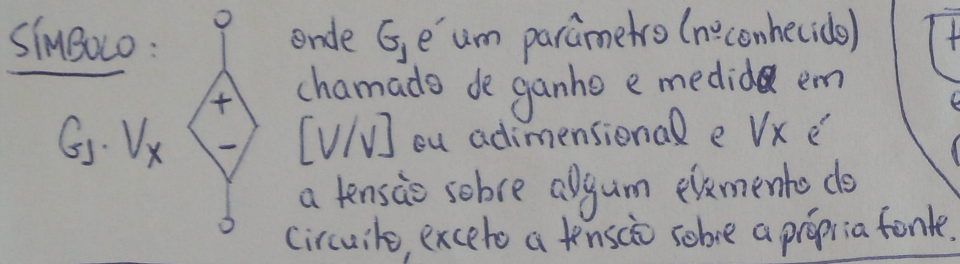 SÍMBOLO:
onde G₁ é um parâmetro (nº conhecido)
chamado de ganho e medido em
G₁. Vx
+
-
[V/V] ou adimensional e Vx é
a tensão sobre algum elemento do
circuito, exceto a tensão sobre a própria fonte.